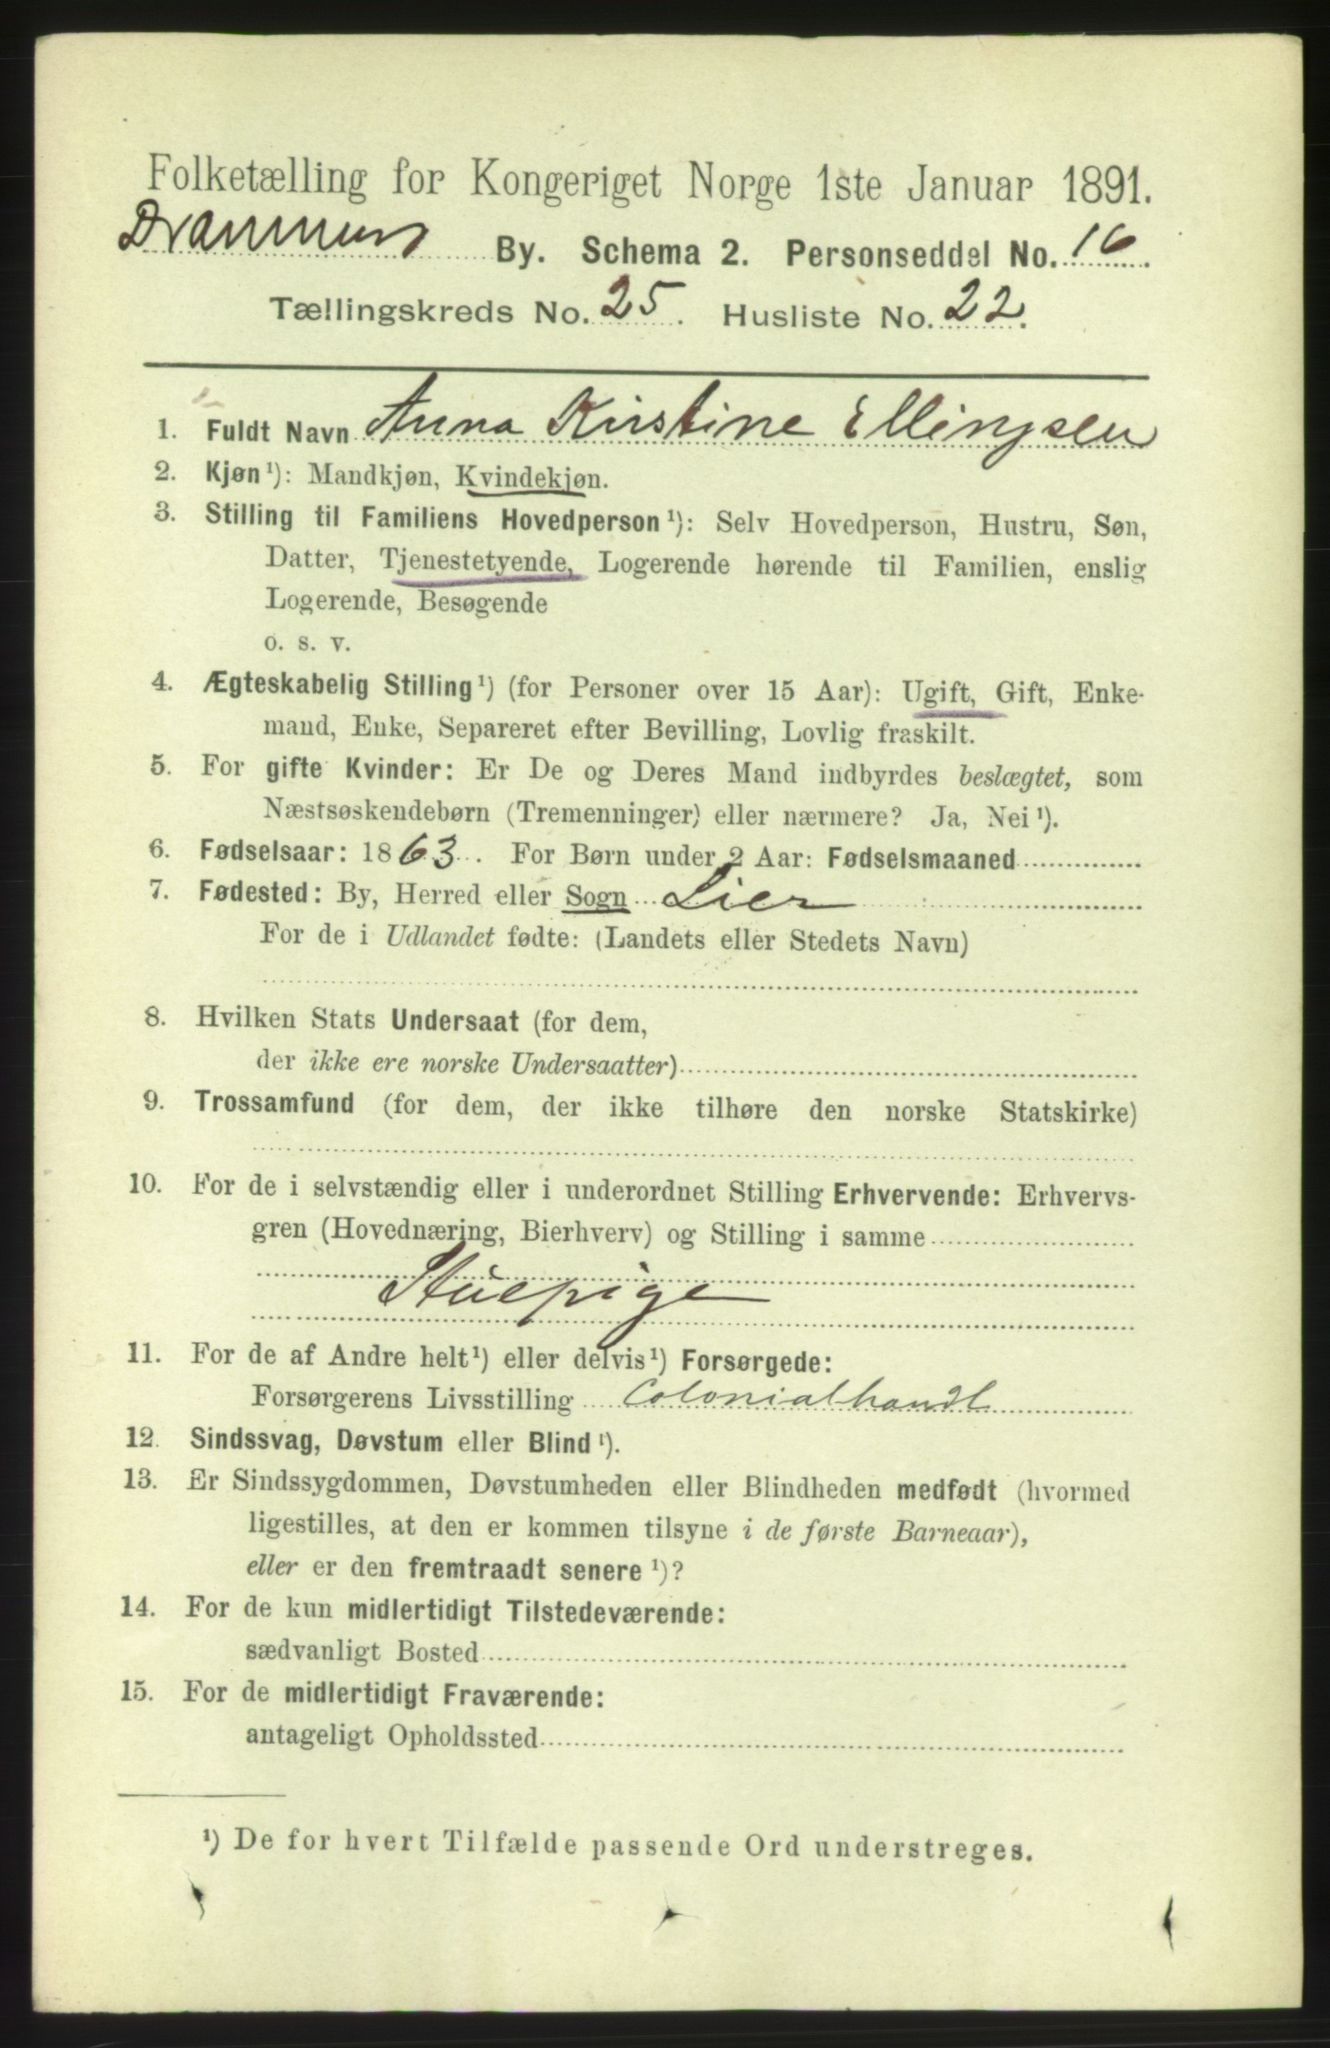 Folketælling for Kongeriget Norge 1ste Januar 1891.
Drammens By. Schema 2. Personseddel No. 16.
Tællingskreds No. 25. Husliste No. 22.
1. Fuldt Navn Anna Kirstine Ellingsen
2. Kjøn¹): Mandkjøn, Kvindekjøn.
3. Stilling til Familiens Hovedperson¹): Selv Hovedperson, Hustru, Søn,
Datter, Tjenestetyende, Logerende hørende til Familien, enslig
Logerende, Besøgende
o. s. v.
4. Ægteskabelig Stilling¹) (for Personer over 15 Aar): Ugift, Gift, Enke-
mand, Enke, Separeret efter Bevilling, Lovlig fraskilt.
5. For gifte Kvinder: Er De og Deres Mand indbyrdes beslægtet, som
Næstsøskendebørn (Tremenninger) eller nærmere? Ja, Nei¹).
6. Fødselsaar: 1863. For Børn under 2 Aar: Fødselsmaaned
7. Fødested: By, Herred eller Sogn Lier
For de i Udlandet fødte: (Landets eller Stedets Navn)
8. Hvilken Stats Undersaat (for dem,
der ikke ere norske Undersaatter)
9. Trossamfund (for dem, der ikke tilhøre den norske Statskirke)
10. For de i selvstændig eller i underordnet Stilling Erhvervende: Erhvervs-
gren (Hovednæring, Bierhverv) og Stilling i samme
Stuepige
11. For de af Andre helt¹) eller delvis¹) Forsørgede:
Forsørgerens Livsstilling Colonialhandl
12. Sindssvag, Døvstum eller Blind¹).
13. Er Sindssygdommen, Døvstumheden eller Blindheden medfødt (hvormed
ligestilles, at den er kommen tilsyne i de første Barneaar),
eller er den fremtraadt senere¹)?
14. For de kun midlertidigt Tilstedeværende:
sædvanligt Bosted
15. For de midlertidigt Fraværende:
antageligt Opholdssted
¹) De for hvert Tilfælde passende Ord understreges.